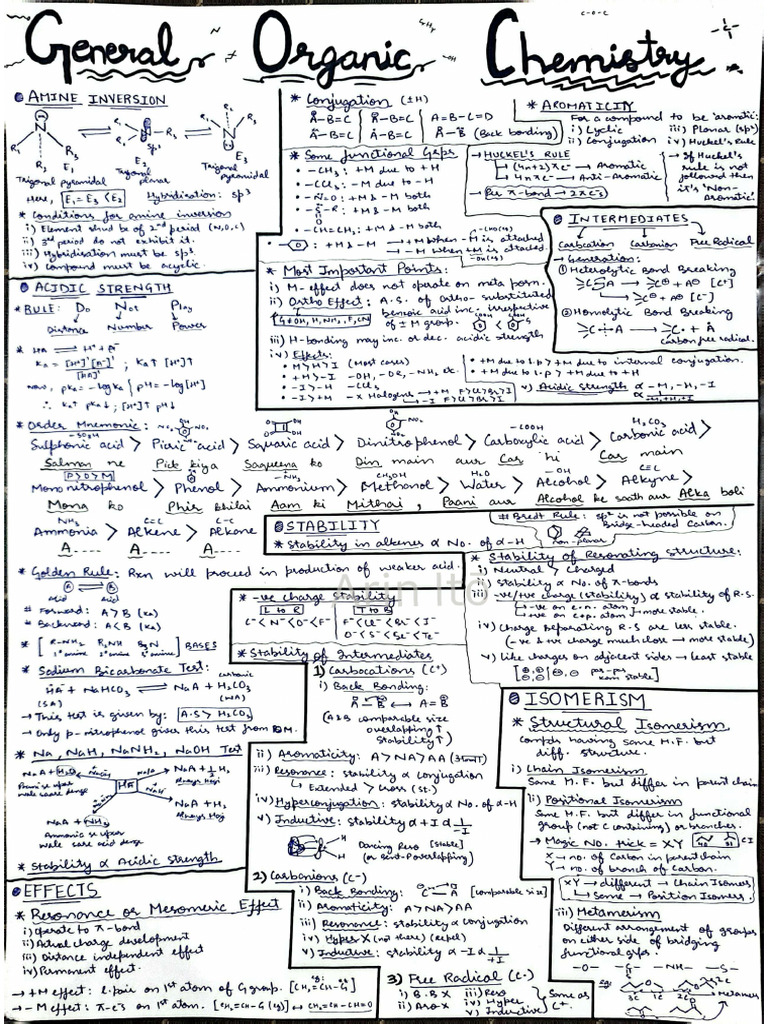 General Organic Chemistry
AMINE INVERSION
Trigonal pyramidal
Trigonal planar
Trigonal pyramidal
Here, E₁ = E₃ < E₂ Hybridisation: sp³
* Conditions for amine inversion
i) Element shud be of 2nd period (N,O,C)
ii) 3rd period do not exhibit it.
iii) Hybridisation must be sp³.
iv) Compound must be acyclic.
* Conjugation (±H)
(Back bonding)
* Some functional Grps
• -CH₃ : +M due to +H
• -CCl₃ : -M due to -H
• -N=O : +M & -M both
-R : +M & -M both
• -CH=CH₂ : +M & -M both
: +M & -M → +M When -M is attached
→ -M When +M is attached.
* AROMATICITY
For a compound to be aromatic:
i) Cyclic iii) Planar (sp²)
ii) Conjugation iv) Huckel's Rule
→ HUCKEL'S RULE
→ (4n+2)πe⁻ → Aromatic
→ 4nπe⁻ → Anti-Aromatic
→ Per π-bond → 2πe⁻s
→ If Huckel's rule is not followed then it's 'Non-Aromatic'
INTERMEDIATES
Carbocation Carbanion Free Radical
→ Generation:
① Heterolytic Bond Breaking
② Homolytic Bond Breaking
carbon free radical.
* Most Important Points:
i) M-effect does not operate on meta posn.
ii) Ortho Effect: A.S. of ortho-substituted benzoic acid inc. irrespective of ±M group.
iii) H-bonding may inc. or dec. acidic strength
iv) Effects:
• M > H > I (Most cases)
• +M > -I -OH, -OR, -NH₂, etc.
• -I > -H -CCl₃
• -I > +M -X Halogens → +M F>Cl>Br>I
→ -I F>Cl>Br>I
• +M due to l.p > +M due to internal conjugation.
• +M due to l.p. > +M due to +H
v) Acidic Strength ∝ -M, -H, -I
ACIDIC STRENGTH
* RULE: Do Not Play
Distance Number Power
* HA ⇌ H⁺ + A⁻
Ka = [H⁺]'[A⁻]' / [HA]' Ka↑ [H⁺]↑
now, pKa = -log Ka { pH = -log[H⁺]
∴ Ka↑ pKa↓ ; [H⁺]↑ pH↓
* Order Mnemonic:
Sulphonic acid > Picric acid > Squaric acid > Dinitrophenol > Carboxylic acid > Carbonic acid >
Salman ne Pick kiya Saqueena ko Din main aur Car hi Car main
P>O>M
Mononitrophenol > Phenol > Ammonium > Methanol > Water > Alcohol > Alkyne >
Mona ko Phir khilai Aam ki Mithai, Paani aur Alcohol ke saath aur Alka boli
Ammonia > Alkene > Alkane
A---- A---- A----
* Golden Rule: Rxn will proceed in production of weaker acid.
acid acid
# Forward: A > B (Ka)
# Backward: A < B (Ka)
1° amine 2° amine 3° amine BASES
* Sodium Bicarbonate Test:
HA + NaHCO₃ ⇌ NaA + H₂CO₃
(SA) (WA)
→ This test is given by: A.S > H₂CO₃
* Na, NaH, NaNH₂, NaOH Test
NaA + H₂O
NaA + ½H₂
Always Hogi
NaA + H₂
Always Hogi
NaA + NH₃
* Stability ∝ Acidic strength
STABILITY
* Stability in alkenes ∝ No. of α-H
# Bredt Rule: sp² is not possible on Bridge-headed Carbon.
non-planar
* -ve charge stability
L to R
T to B
C⁻ < N⁻ < O⁻ < F⁻
F⁻ < Cl⁻ < Br⁻ < I⁻
O⁻ < S⁻ < Se⁻ < Te⁻
* Stability of Resonating structure:
i) Neutral > Charged
ii) stability ∝ No. of π-bonds
iii) -ve/+ve charge (stability) ∝ stability of R.S.
→ -ve on e.n. atom
→ +ve on e+p. atom
more stable.
iv) charge separating R.S are less stable.
(-ve & +ve charge much close → more stable)
v) like charges on adjacent sides → least stable
* Stability of Intermediates
1) Carbocations (C⁺)
i) Back Bonding:
(A & B comparable size
overlapping ↑
Stability ↑)
ii) Aromaticity: A > NA > AA
iii) Resonance: stability ∝ conjugation
↳ Extended > Cross (st.)
iv) Hyperconjugation: stability ∝ No. of α-H
v) Inductive: stability ∝ +I ∝ 1/-I
Dancing Reso [stable]
2) Carbanions (C⁻)
i) Back Bonding: [comparable size]
ii) Aromaticity: A > NA > AA
iii) Resonance: stability ∝ conjugation
iv) Hyper X (not there) (repel)
v) Inductive: stability ∝ -I ∝ 1/+I
3) Free Radical (C•)
i) B.B X iii) Reso
ii) Aro X iv) Hyper
v) Inductive
Same as C⁺.
ISOMERISM
* Structural Isomerism
Compds having same M.F. but diff. structure.
i) Chain Isomerism
Same M.F but differ in parent chain
ii) Positional Isomerism
Same M.F but differ in functional group (not C containing) or branches.
→ Magic No. trick = XY
X → no. of Carbon in parent chain
Y → no. of branch of Carbon.
XY → different → Chain Isomers
→ Same → Position Isomers.
iii) Metamerism
Different arrangement of groups on either side of bridging functional grps.
-O- -NH- -S-
EFFECTS
* Resonance or Mesomeric Effect
i) Operate to π-bond
ii) Actual charge development
iii) Distance independent effect
iv) Permanent effect.
→ +M effect: l.pair on 1st atom of G group.
→ -M effect: π-e⁻s on 1st atom.
Arin Ito